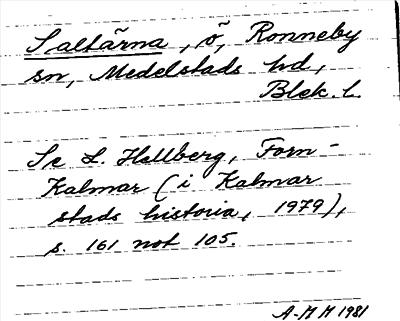 Saltärna, ö, Ronneby
sn, Medelstads hd,
Blek. l.
Se L. Hallberg, Forn-
Kalmar (i Kalmar
stads historia, 1979),
s. 161 not 105.
A-M H 1981